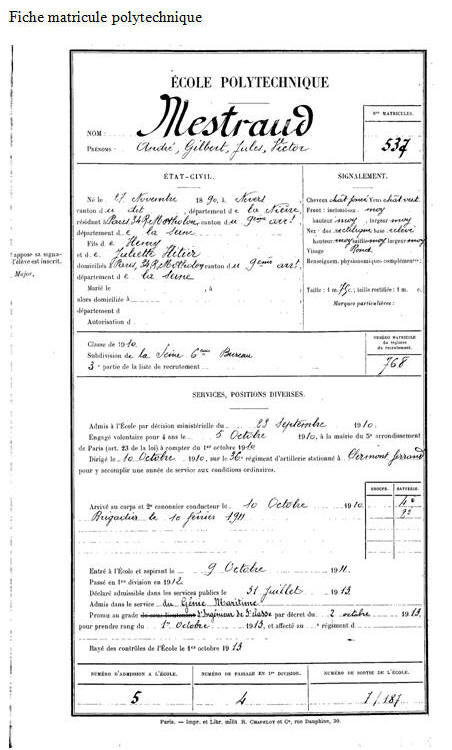 Fiche matricule polytechnique
ÉCOLE POLYTECHNIQUE
Mestraud
NOM :
PRÉNOMS : André, Gilbert, Jules, Victor
Nos MATRICULES.
537
ÉTAT-CIVIL.
Né le 27 Novembre 1890, à Nevers
canton du dit, département de la Nièvre,
résidant à Paris, 34 R. Motholon, canton du 9eme arrt
département de la Seine
Fils d'Henry
et de Juliette Hélier
domiciliés à Paris, 34 R. Motholon, canton du 9eme arrt
département de la Seine
Marié le , à
alors domiciliée à
département d
Autorisation d
SIGNALEMENT.
Cheveux chât foncé Yeux chât vert
Front : inclinaison moy
hauteur moy, largeur moy
Nez : dos rectiligne base relevé
hauteur moy saillie moy largeur moy
Visage Rond
Renseignem. physionomiques complémentres :
Taille : 1 m. 75 c; taille rectifiée : 1 m. c.
Marques particulières :
appose sa signa-
l'élève est inscrit.
Major,
Classe de 1910.
Subdivision de la Seine 6eme Bureau
3e partie de la liste de recrutement
NUMÉRO MATRICULE
du registre
du recrutement.
768
SERVICES, POSITIONS DIVERSES.
Admis à l'École par décision ministérielle du 23 Septembre 1910.
Engagé volontaire pour 4 ans le 5 Octobre 1910, à la mairie du 5e arrondissement
de Paris (art. 23 de la loi) à compter du 1er octobre 1910
Dirigé le 10 Octobre 1910, sur le 36e régiment d'artillerie stationné à Clermont Ferrand
pour y accomplir une année de service aux conditions ordinaires.
GROUPE. BATTERIE.
Arrivé au corps et 2e canonnier conducteur le 10 Octobre 1910 4e
Brigadier le 10 février 1911 2e
Entré à l'École et aspirant le 9 Octobre 1911.
Passé en 1re division en 1912
Déclaré admissible dans les services publics le 31 Juillet 1913
Admis dans le service du Génie Maritime
Promu au grade de sous-lieutenant d'Ingénieur de 3e classe par décret du 2 octobre 1913
pour prendre rang du 1er Octobre 1913, et affecté au régiment d
Rayé des contrôles de l'École le 1er octobre 1913
NUMÉRO D'ADMISSION A L'ÉCOLE. NUMÉRO DE PASSAGE EN 1re DIVISION. NUMÉRO DE SORTIE DE L'ÉCOLE.
5 4 7/187
Paris. — Impr. et Libr. milit R. CHAPELOT et Ce, rue Dauphine, 30.